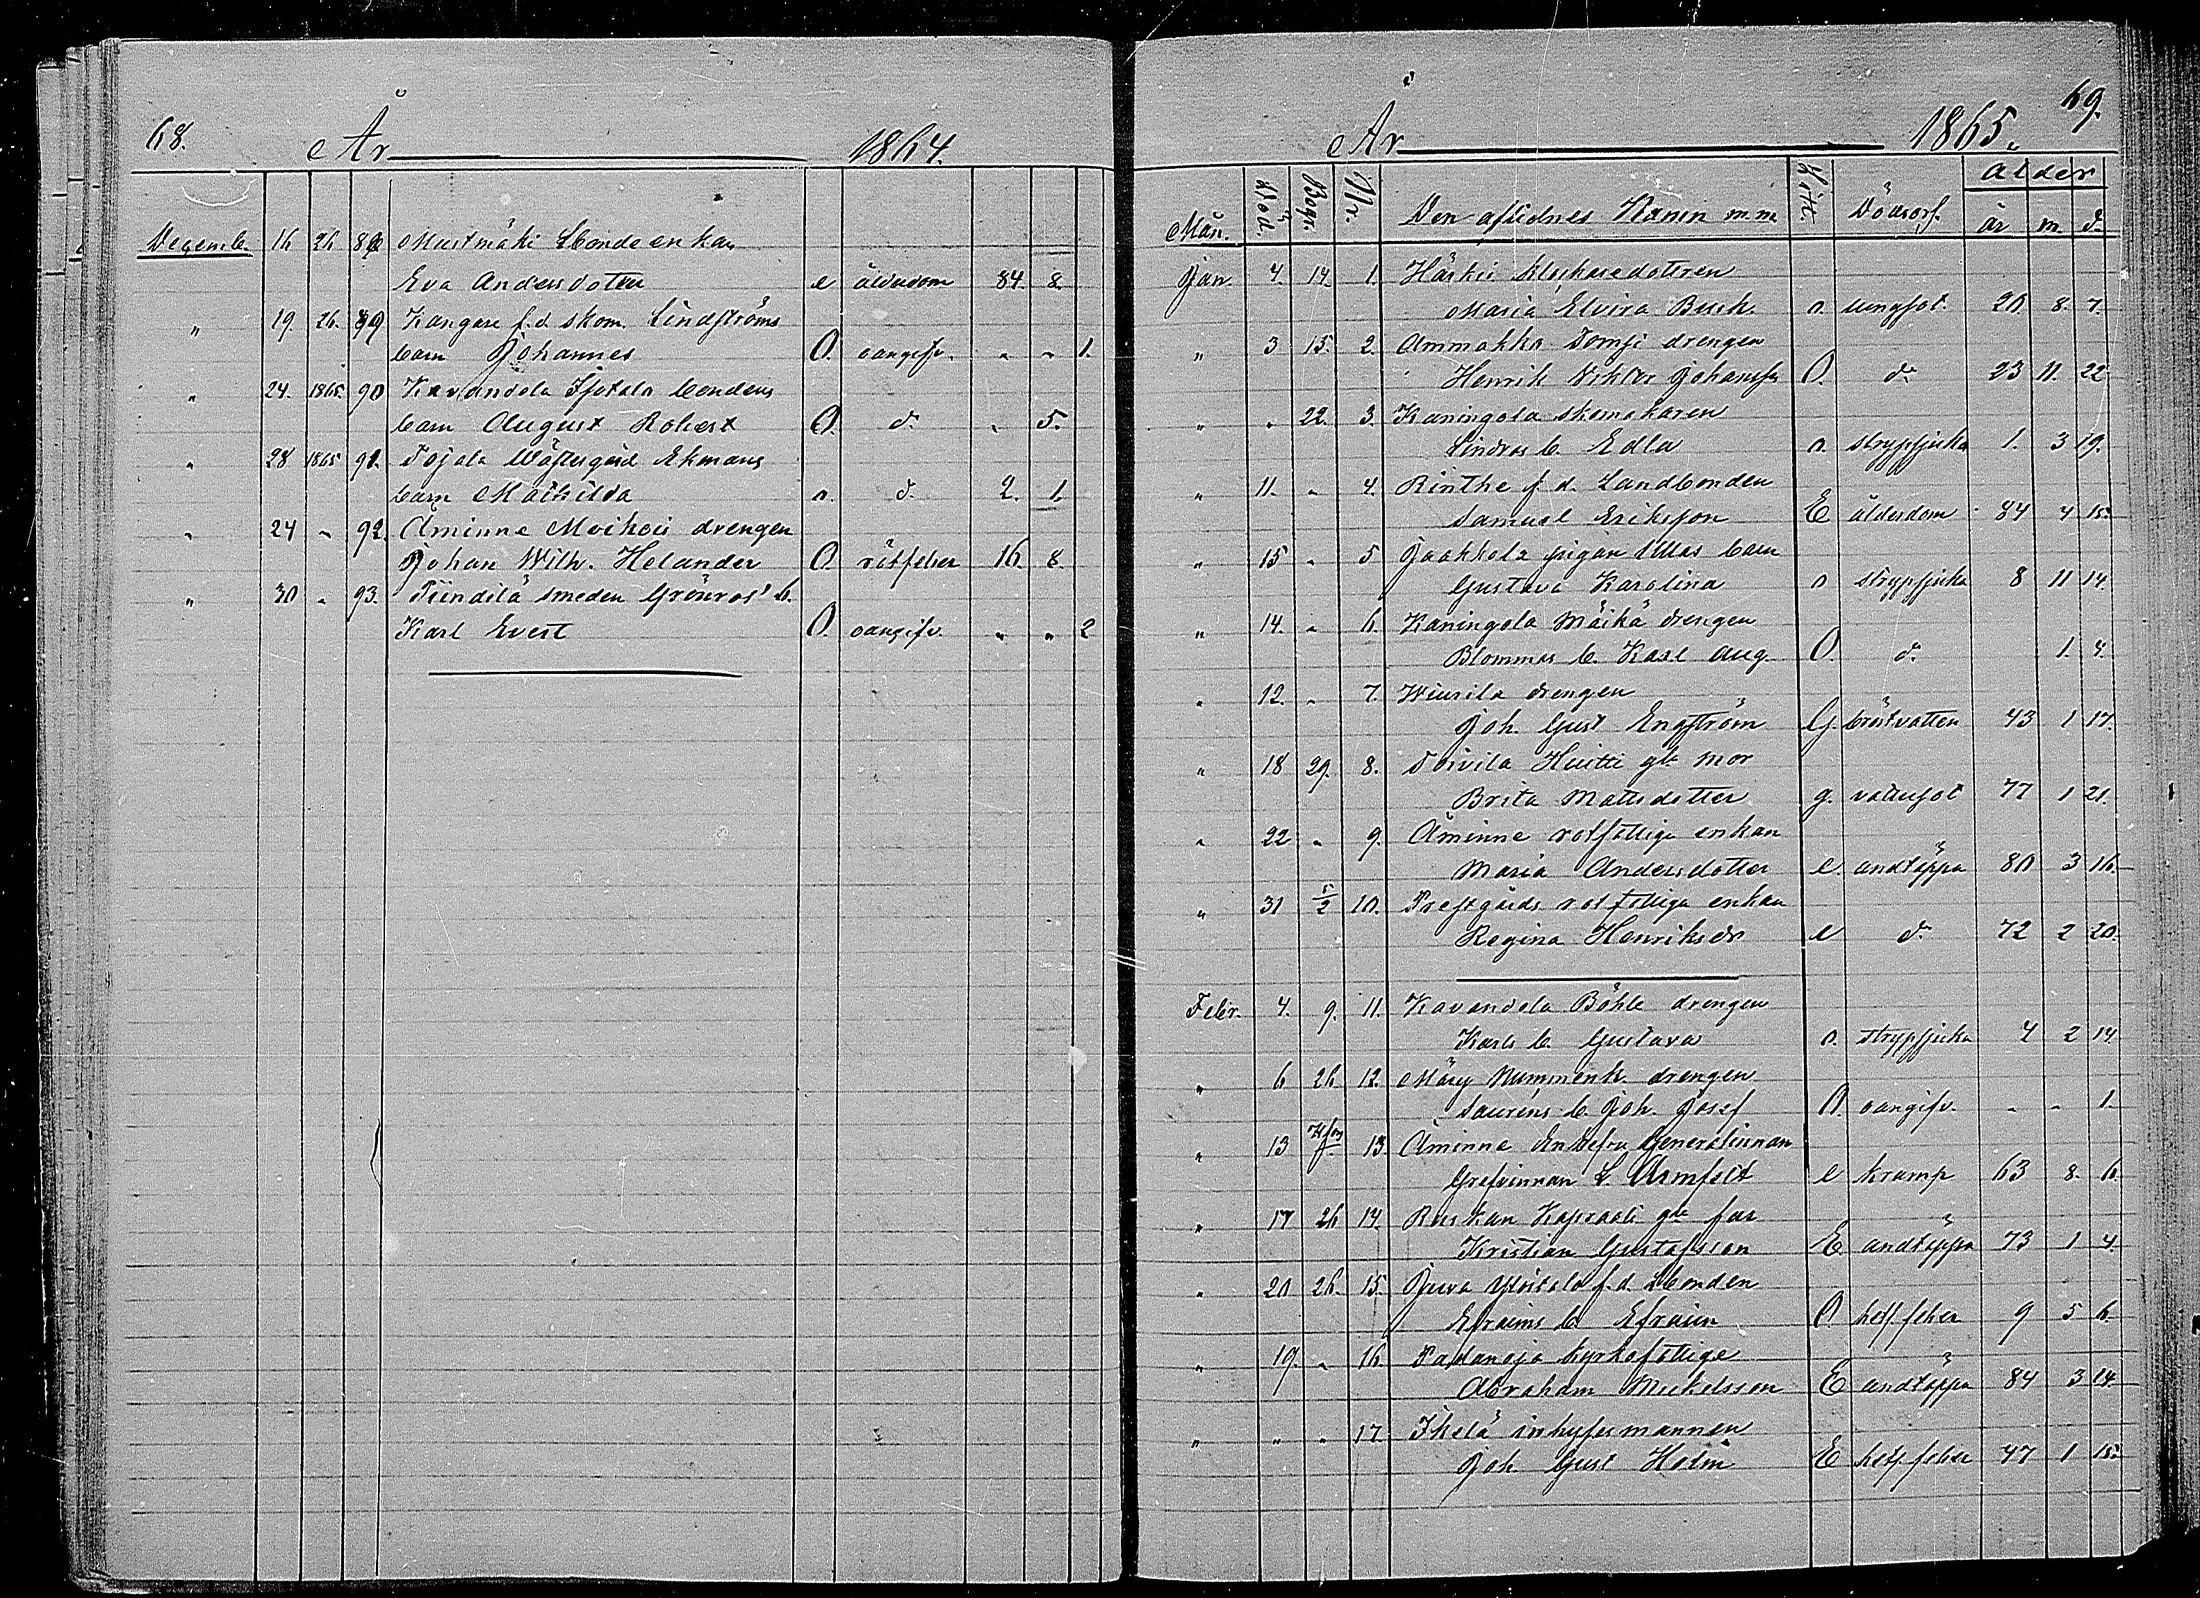 68.
År 1864.
Decemb. 16 26 88 Mustmäki bondeenkan
Eva Andersdotter e ålderdom 84. 8.
" 19. 26. 89 Kangare f.d. skom. Lindströms
barn Johannes O. oangifv. " " 1.
" 24. 1865 90 Kavandola Isotalo bondens
barn August Robert O. d:o " 5.
" 28 1865 91. Tojala Wästergård Ekmans
barn Mathilda o. d:o 2. 1.
" 24 " 92. Åminne Moikois drengen
Johan Wilh. Helander O. rötfeber 16. 8.
" 30 " 93. Piindilä smeden Grönros' b.
Karl Evert O. oangifv. " " 2
69.
År 1865.
Mån. Död. Begr. Nr. Den aflidnes Namn m.m. Kött. Dödsors. Ålder
år m. d.
Jan. 4. 14. 1. Härkii
Maria Elvira Buch. o. lungsot. 20. 8. 7.
" 3 15. 2. Ammakko Tomji drengen
Henrik Viktor Johansson O. d:o 23 11. 22
" " 22. 3. Kaningola skomakaren
Lindros b. Edla o. strypsjuka 1. 3 19.
" 11. " 4. Rinthe f.d. Landbonden
Samuel Eriksson E ålderdom 84 4 15.
" 15 " 5 Jaakkola pigan Ullas barn
Gustava Karolina o strypsjuka 8 11 14.
" 14. " 6. Kaningola Mäikä drengen
Blommas b. Karl Aug. O. d:o 1. 4.
" 12. " 7. Wiurila drengen
Joh. Gust Engström G. bröstvatten 43 1 17.
" 18 29. 8. Toivila Huitti gb. mor
Brita Mattsdotter g. vattusot 77 1 21.
" 22 " 9. Åminne rotfattige enkan
Maria Andersdotter e. andtäppa 80 3 16.
" 31 5/2 10. Prestgårds rotfattige enkan
Regina Henriksdr e d:o 72 2 20.
Febr. 4. 9. 11. Kavandola Böhle drengen
Karls b. Gustava o. strypsjuka 4 2 14
" 6 26 12. Märy Nummenk. drengen
Laurens b. Joh. Josef O. oangifv. " " 1.
" 13 13. Åminne Enkefru Generalinnan
Grefvinnan L. Armfelt e kramp 63 8. 6.
" 17 26 14. Ruskan Kapraali gb. far
Kristian Gustafsson E andtäppa 73 1 4.
" 20 26. 15. Juva Yli talo f.d. bonden
Efraims b. Efraim O hets. feber 9 5 6.
" 19. " 16 Padanoja kyrkofattige
Abraham Mickelsson E andtäppa 84 3 14.
" " " 17. Ihelä inhysesmannen
Joh. Gust Holm E hets. feber 47 1 15.